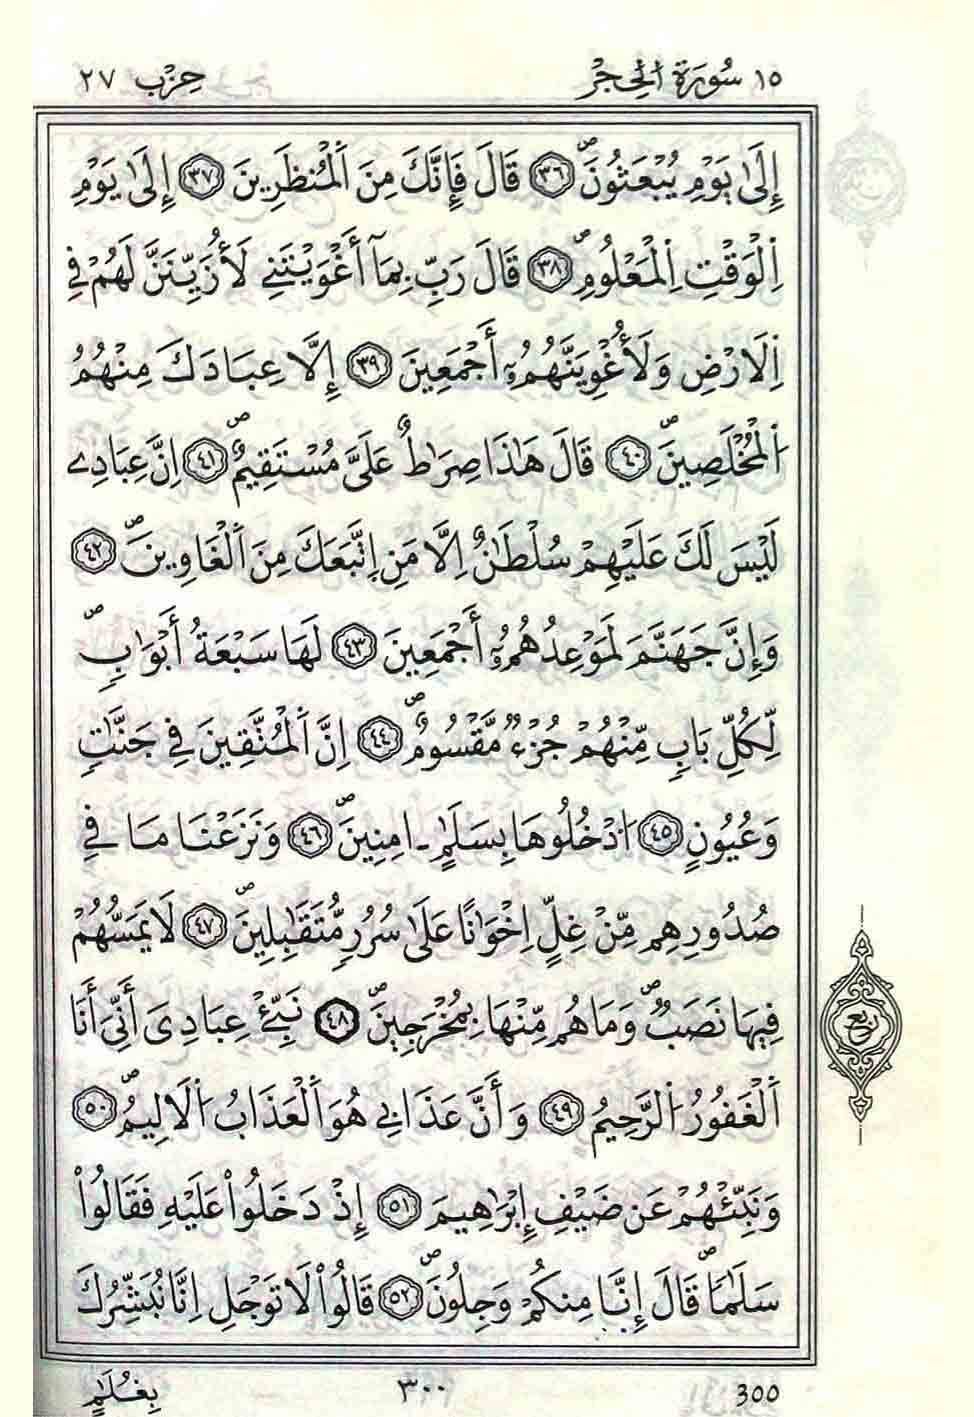 ١٥ سُورَةُ اَ۬لْحِجْرِ حِزْب ٢٧
إِلَىٰ يَوْمِ يُبْعَثُونَۖ ٣٦ قَالَ فَإِنَّكَ مِنَ اَ۬لْمُنظَرِينَ ٣٧ إِلَىٰ يَوْمِ
اِ۬لْوَقْتِ اِ۬لْمَعْلُومِۖ ٣٨ قَالَ رَبِّ بِمَآ أَغْوَيْتَنِے لَأُزَيِّنَنَّ لَهُمْ فِے
اِ۬لَارْضِ وَلَأُغْوِيَنَّهُمُۥٓ أَجْمَعِينَ ٣٩ إِلَّا عِبَادَكَ مِنْهُمُ
اُ۬لْمُخْلَصِينَۖ ٤٠ قَالَ هَٰذَا صِرَٰطٌ عَلَيَّ مُسْتَقِيمٌۖ ٤١ اِنَّ عِبَادِے
لَيْسَ لَكَ عَلَيْهِمْ سُلْطَٰنٌ اِلَّا مَنِ اِ۪تَّبَعَكَ مِنَ اَ۬لْغَاوِينَۖ ٤٢
وَإِنَّ جَهَنَّمَ لَمَوْعِدُهُمُۥٓ أَجْمَعِينَ ٤٣ لَهَا سَبْعَةُ أَبْوَٰبٖۖ
لِّكُلِّ بَابٖ مِّنْهُمْ جُزْءٞ مَّقْسُومٌۖ ٤٤ اِنَّ اَ۬لْمُتَّقِينَ فِے جَنَّٰتٖ
وَعُيُونٍ ٤٥ اُ۟دْخُلُوهَا بِسَلَٰمٍ اٰمِنِينَۖ ٤٦ وَنَزَعْنَا مَا فِے
صُدُورِهِم مِّنْ غِلٍّ اِخْوَٰنًا عَلَىٰ سُرُرٖ مُّتَقَٰبِلِينَۖ ٤٧ لَا يَمَسُّهُمْ
فِيهَا نَصَبٞ وَمَا هُم مِّنْهَا بِمُخْرَجِينَۖ ٤٨ نَبِّۓْ عِبَادِيَ أَنِّيَ أَنَا
اَ۬لْغَفُورُ اُ۬لرَّحِيمُ ٤٩ وَأَنَّ عَذَابِے هُوَ اَ۬لْعَذَابُ اُ۬لَالِيمُۖ ٥٠
وَنَبِّئْهُمْ عَن ضَيْفِ إِبْرَٰهِيمَ ٥١ إِذْ دَخَلُواْ عَلَيْهِ فَقَالُواْ
سَلَٰماٗۖ قَالَ إِنَّا مِنكُمْ وَجِلُونَۖ ٥٢ قَالُواْ لَا تَوْجَلِ اِنَّا نُبَشِّرُكَ
ربع
300 ٣٠٠ بِغُلَٰمٍ